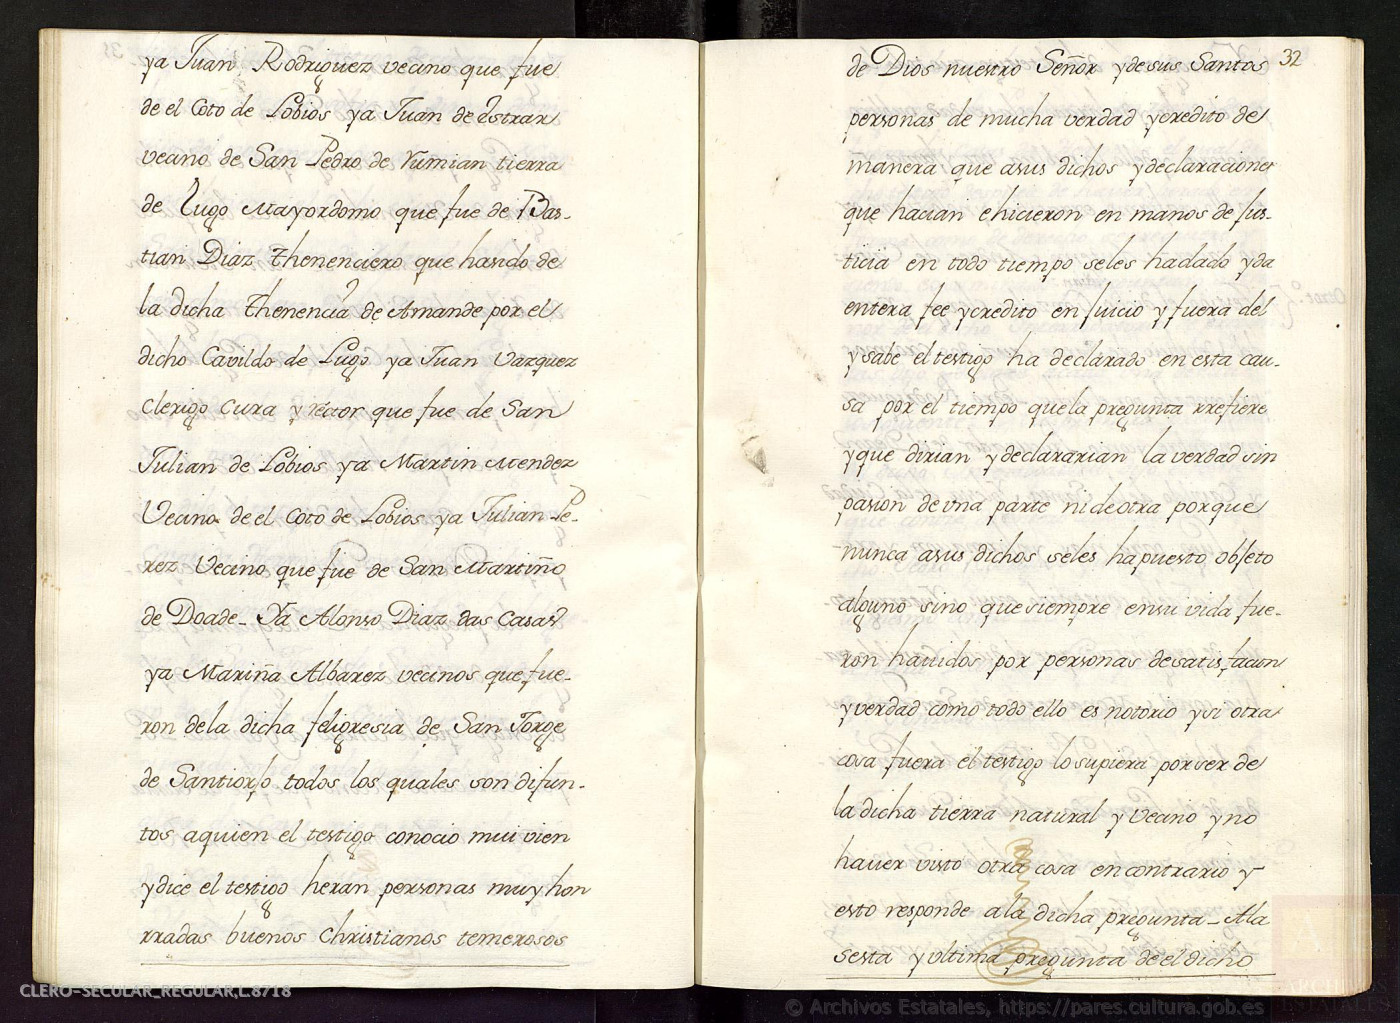 ya Juan Rodriguez vecino que fue
de el Coto de Lobios ya Juan de Estrar
vecino de San Pedro de Rumian tierra
de Lugo Mayordomo que fue de Bas-
tian Diaz thenenciero que hasido de
la dicha thenencia de Amande por el
dicho Cavildo de Lugo ya Juan Vazquez
Clerigo Cura y rector que fue de San
Julian de Lobios ya Martin Mendez
Vecino de el Coto de Lobios ya Julian Pe-
rez Vecino que fue de San Martiño
de Doade_ Ya Alonso Diaz das Casas
ya Mariña Albarez vecinos que fue-
ron dela dicha feligresia de San Jorge
de Santiorjo todos los quales son difun-
tos aquien el testigo conocio mui vien
ydice el testigo heran personas muy hon
rradas buenos Christianos temerosos
32
de Dios nuestro Señor ydesus Santos
personas de mucha verdad ycredito de
manera que asus dichos ydeclaraciones
que hacian ehicieron en manos de jus-
ticia en todo tiempo seles hadado yda
entera fee ycredito en juicio y fuera del
ysabe el testigo ha declarado en esta cau-
sa por el tiempo quela pregunta rrefiere
yque dirian ydeclararian la verdad sin
pasion de vna parte nideotra porque
nunca asus dichos seles hapuesto objeto
alguno sino quesiempre ensu vida fue-
ron hauidos por personas desatisfacion
yverdad como todo ello es notorio ysi otra
cosa fuera el testigo losupiera porser de
la dicha tierra natural y vecino yno
hauer visto otra cosa encontrario y
esto responde ala dicha pregunta_ Ala
sesta yultima pregunta de el dicho
CLERO-SECULAR_REGULAR,L.8718
© Archivos Estatales, https://pares.cultura.gob.es